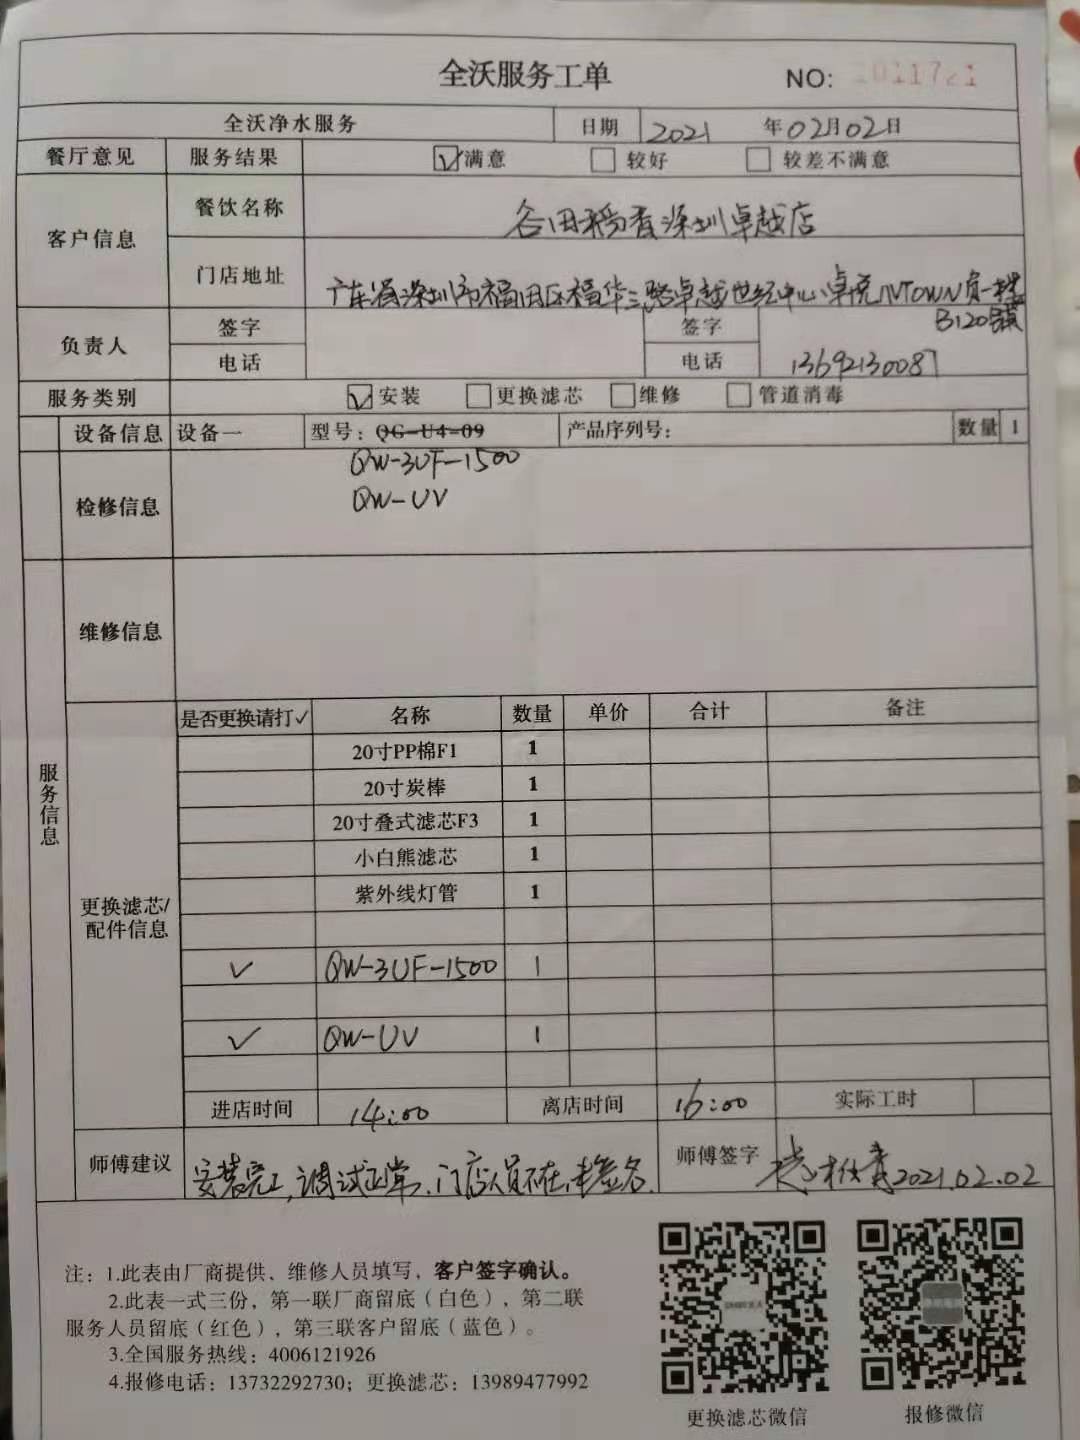 全沃服务工单 NO: 1011721
全沃净水服务 日期 2021 年02月02日
餐厅意见 服务结果 ☑满意 □较好 □较差不满意
客户信息 餐饮名称 谷田稻香深圳卓越店
门店地址 广东省深圳市福田区福华三路卓越世纪中心卓悦INTOWN负一楼
B120号铺
负责人 签字 签字
电话 电话 13692130087
服务类别 ☑安装 □更换滤芯 □维修 □管道消毒
设备信息 设备一 型号：QG-U4-09 产品序列号： 数量 1
QW-3UF-1500
检修信息 QW-UV
维修信息
服务信息
更换滤芯/
配件信息
是否更换请打✓ 名称 数量 单价 合计 备注
20寸PP棉F1 1
20寸炭棒 1
20寸叠式滤芯F3 1
小白熊滤芯 1
紫外线灯管 1
✓ QW-3UF-1500 1
✓ QW-UV 1
进店时间 14:00 离店时间 16:00 实际工时
师傅建议 安装完工，调试正常、门店人员不在，未签名. 师傅签字 2021.02.02
注：1.此表由厂商提供、维修人员填写，客户签字确认。
2.此表一式三份，第一联厂商留底（白色），第二联
服务人员留底（红色），第三联客户留底（蓝色）。
3.全国服务热线：4006121926
4.报修电话：13732292730；更换滤芯：13989477992
更换滤芯微信 报修微信